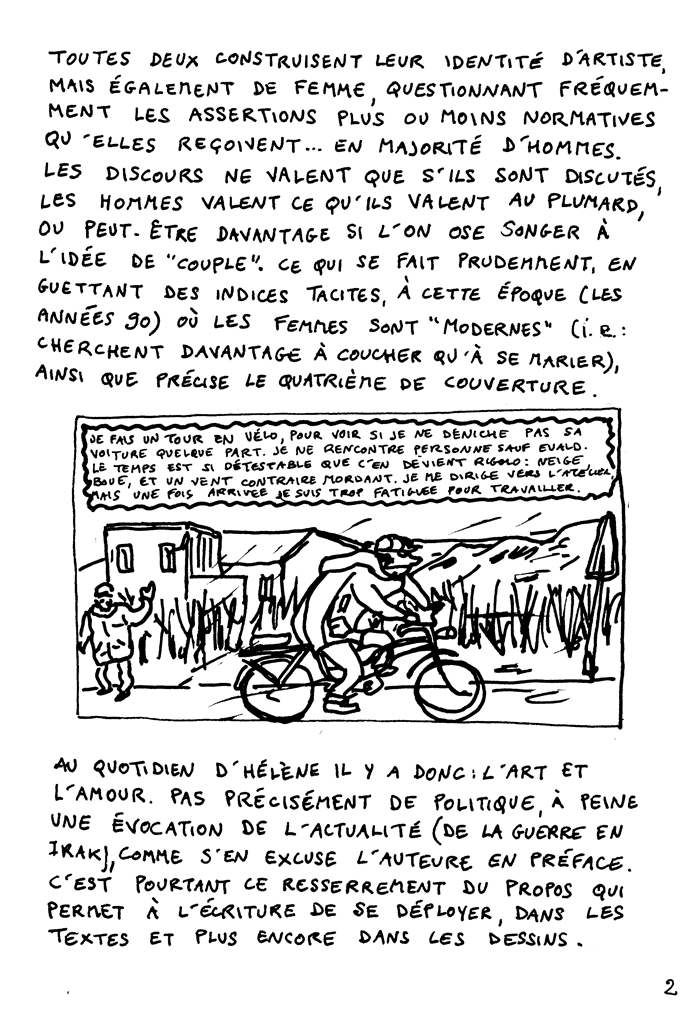 TOUTES DEUX CONSTRUISENT LEUR IDENTITÉ D'ARTISTE,
MAIS ÉGALEMENT DE FEMME, QUESTIONNANT FRÉQUEM-
MENT LES ASSERTIONS PLUS OU MOINS NORMATIVES
QU'ELLES REÇOIVENT... EN MAJORITÉ D'HOMMES.
LES DISCOURS NE VALENT QUE S'ILS SONT DISCUTÉS,
LES HOMMES VALENT CE QU'ILS VALENT AU PLUMARD,
OU PEUT-ÊTRE DAVANTAGE SI L'ON OSE SONGER À
L'IDÉE DE "COUPLE". CE QUI SE FAIT PRUDEMMENT, EN
GUETTANT DES INDICES TACITES, À CETTE ÉPOQUE (LES
ANNÉES 90) OÙ LES FEMMES SONT "MODERNES" (i.e.:
CHERCHENT DAVANTAGE À COUCHER QU'À SE MARIER),
AINSI QUE PRÉCISE LE QUATRIÈME DE COUVERTURE.
JE FAIS UN TOUR EN VÉLO, POUR VOIR SI JE NE DÉNICHE PAS SA
VOITURE QUELQUE PART. JE NE RENCONTRE PERSONNE SAUF EVALD.
LE TEMPS EST SI DÉTESTABLE QUE C'EN DEVIENT RIGOLO: NEIGE
BOUE, ET UN VENT CONTRAIRE MORDANT. JE ME DIRIGE VERS L'ATELIER,
MAIS UNE FOIS ARRIVÉE JE SUIS TROP FATIGUÉE POUR TRAVAILLER.
AU QUOTIDIEN D'HÉLÈNE IL Y A DONC: L'ART ET
L'AMOUR. PAS PRÉCISÉMENT DE POLITIQUE, À PEINE
UNE ÉVOCATION DE L'ACTUALITÉ (DE LA GUERRE EN
IRAK), COMME S'EN EXCUSE L'AUTEURE EN PRÉFACE.
C'EST POURTANT CE RESSERREMENT DU PROPOS QUI
PERMET À L'ÉCRITURE DE SE DÉPLOYER, DANS LES
TEXTES ET PLUS ENCORE DANS LES DESSINS.
2